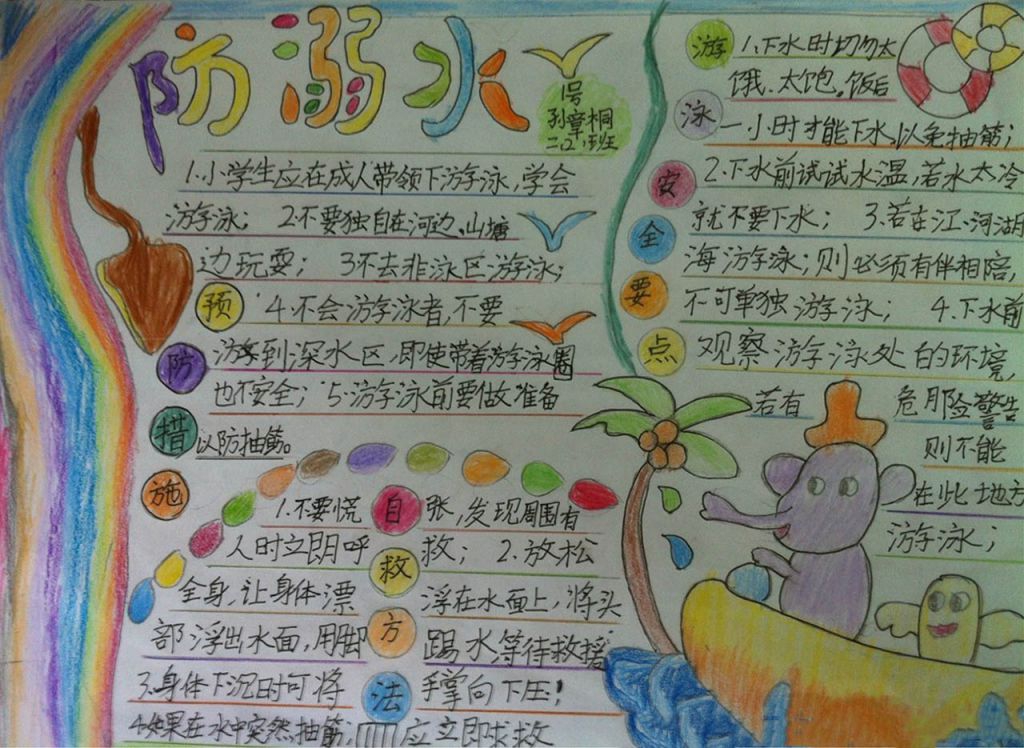 防溺水
1号
孙章桐
二.(2).班
1.小学生应在成人带领下游泳,学会
游泳;2.不要独自在河边、山塘
边玩耍;3不去非泳区游泳;
4.不会游泳者,不要
游到深水区,即使带着游泳圈
也不安全;5.游泳前要做准备
以防抽筋。
预防措施
1.不要慌张,发现周围有
人时立即呼救;2.放松
全身,让身体漂浮在水面上,将头
部浮出水面,用脚踢水等待救援
3.身体下沉时可将手掌向下压!
4.如果在水中突然抽筋;应立即求救
自救方法
游泳安全要点
1.下水时切勿太
饿、太饱,饭后
一小时才能下水,以免抽筋;
2.下水前试试水温,若水太冷
就不要下水;3.若在江.河湖
海游泳;则必须有伴相陪,
不可单独游泳;4.下水前
观察游泳处的环境,
若有危险警告
则不能
在此地方
游泳;